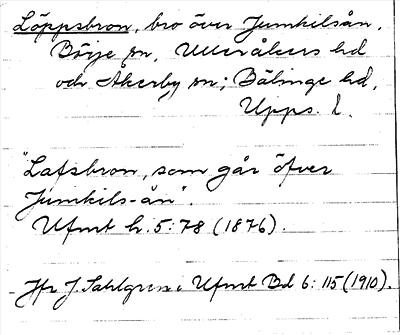 Löppsbron, bro över Jumkilsån,
Börje sn, Ulleråkers hd
och Åkerby sn; Bälinge hd,
Upps. l.
"Lafsbron, som går öfver
Jumkils-ån".
Ufmt h. 5:78 (1876).
Jfr J. Sahlgren i Ufmt Bd 6: 115 (1910).